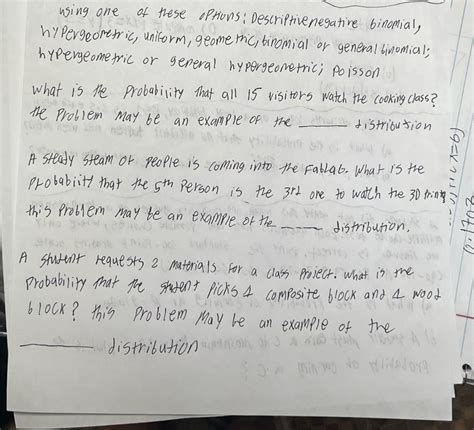 using one of these options: Descriptive, negative binomial,
hypergeometric, uniform, geometric, binomial or general binomial;
hypergeometric or general hypergeometric; poisson
what is the Probability that all 15 visitors watch the cooking class?
the Problem may be an example of the ____ distribution
A steady steam of People is coming into the FabLab. What is the
Probability that the 5th Person is the 3rd one to watch the 3D
this Problem may be an example of the ____ distribution.
A student requests 2 materials for a class Project. What is the
Probability that the student picks 1 composite block and 1 wood
block? this Problem May be an example of the
____ distribution